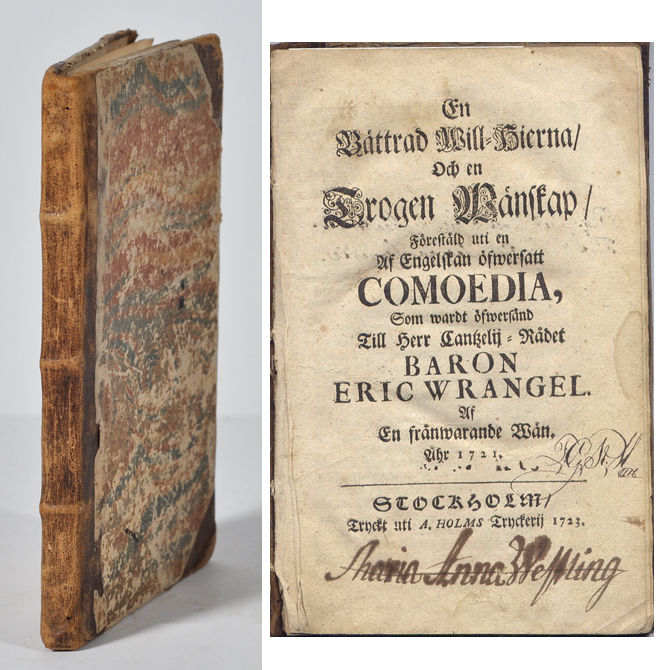 En
Bättrad Will-Hierna/
Och en
Trogen Wänskap/
Föreståld uti en
Af Engelskan öfwersatt
COMOEDIA,
Som wardt öfwersänd
Till Herr Cantzelij-Rådet
BARON
ERIC WRANGEL.
Af
En frånwarande Wän.
Åhr 1721.
STOCKHOLM/
Tryckt uti A. HOLMS Tryckerij 1723.
Maria Anna Westling